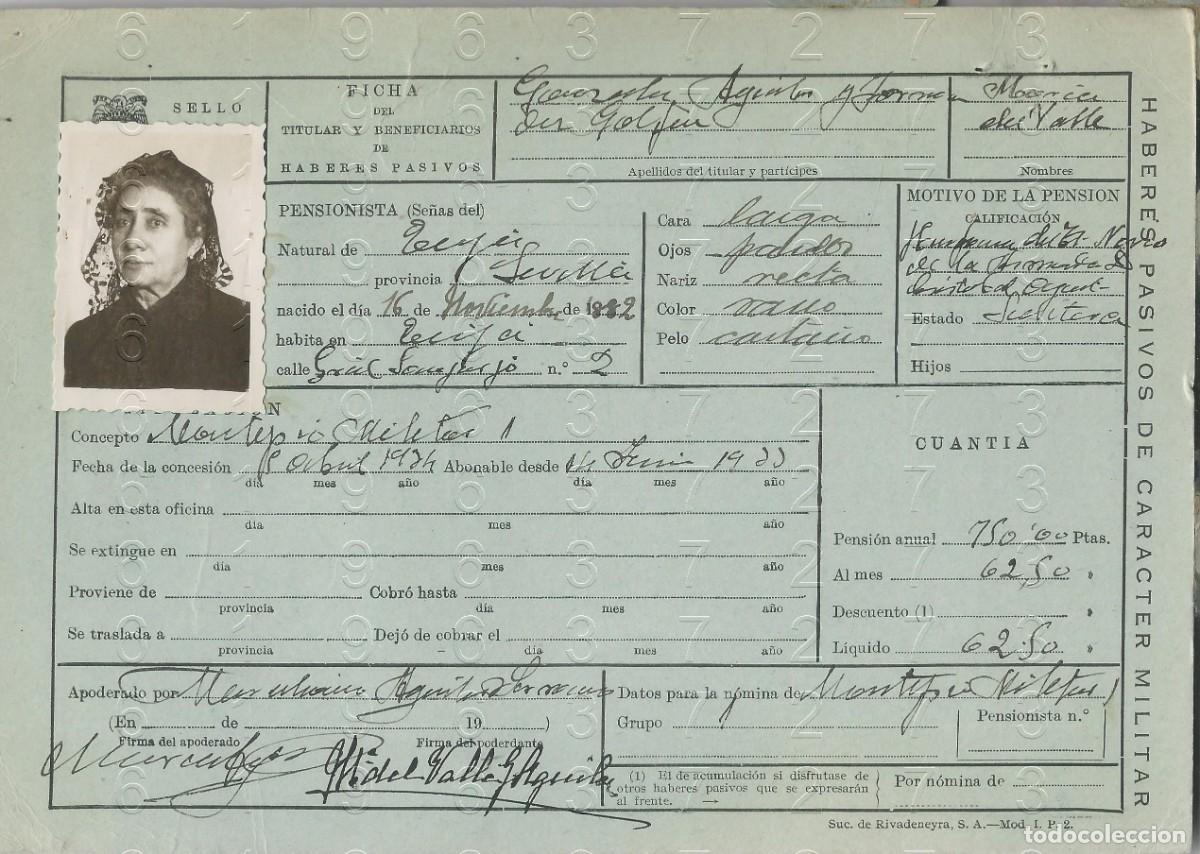 6 1 9 6 3 7 2 7 3
SELLO
FICHA
DEL
TITULAR Y BENEFICIARIOS
DE
HABERES PASIVOS
Gonzalez Aguilar y
Maria
del Valle
Apellidos del titular y partícipes
Nombres
HABERES PASIVOS DE CARACTER MILITAR
PENSIONISTA (Señas del)
Natural de Ecija
provincia Sevilla
nacido el día 16 de Noviembre de 1882
habita en Ecija
calle Gral Sanjurjo n.º 2
Cara larga
Ojos pardos
Nariz recta
Color sano
Pelo castaño
MOTIVO DE LA PENSION
CALIFICACIÓN
de la Armada D
Estado Soltera
Hijos
Concepto Montepio Militar 1
Fecha de la concesión Abril 1934 Abonable desde 14 Junio 1933
día mes año día mes año
Alta en esta oficina
día mes año
Se extingue en
día mes año
Proviene de Cobró hasta
provincia día mes año
Se traslada a Dejó de cobrar el
provincia día mes año
CUANTIA
Pensión anual 750'00 Ptas.
Al mes 62,50 »
Descuento (1) »
Líquido 62.50 »
Apoderado por Aguilar
(En de 19 )
Firma del apoderado Firma del poderdante
Mª del Valle G Aguilar
Datos para la nómina de Montepio Militar 1
Grupo
Pensionista n.º
(1) El de acumulación si disfrutase de
otros haberes pasivos que se expresarán
al frente. →
Por nómina de
Suc. de Rivadeneyra, S. A.—Mod. I. P. 2.
todocoleccion